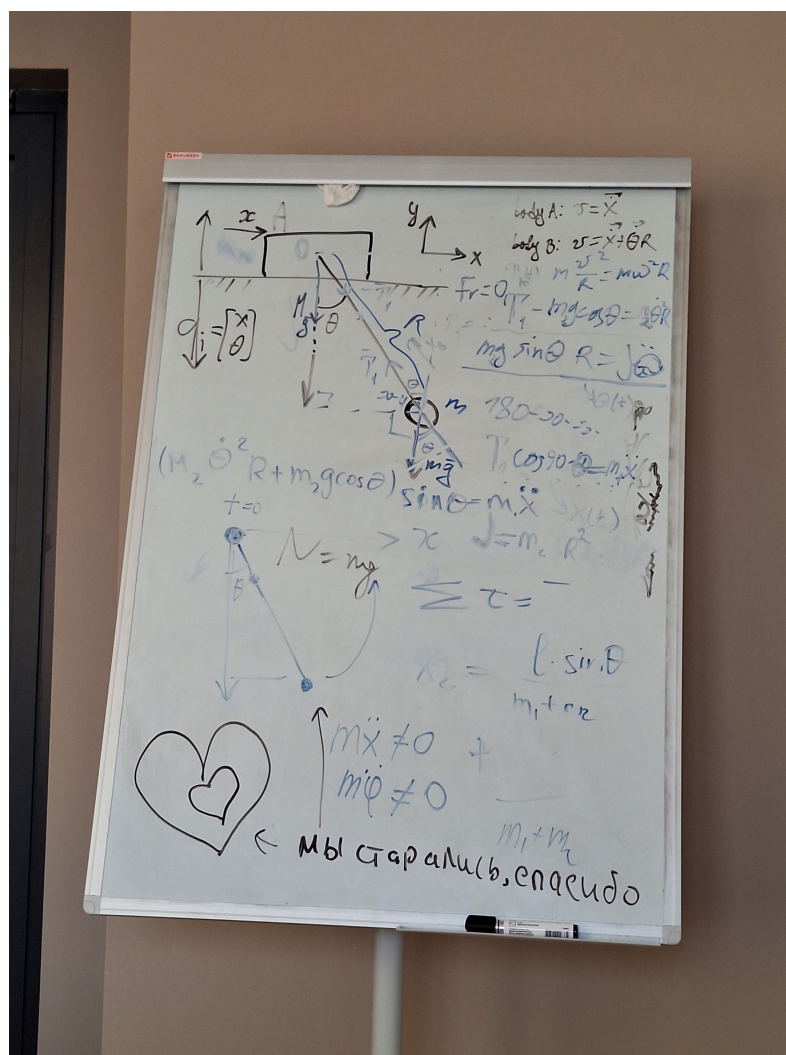 BRAUBERG
x A
y
x
body A: v = ẋ
body B: v = ẋ + θ̇R
O
m v²/R = mω²R
Fr = 0
T₁ - mg cosθ = m₂θ̇²R
M
g
θ
R
q_i = [x θ]
mg sinθ R = Jθ̈
T₁
m
180-90-
θ
mg
T₁ cos90-θ = m₁ẍ
(M₂ θ̇² R + m₂g cosθ) sinθ = m₁ẍ
x(t)
t=0
N = mg
x
J = m₂ R²
θ
Σ τ =
x₂ = l · sinθ / m₁ + m₂
mẍ ≠ 0 +
mφ̈ ≠ 0
m₁ + m₂
← мы старались, спасибо